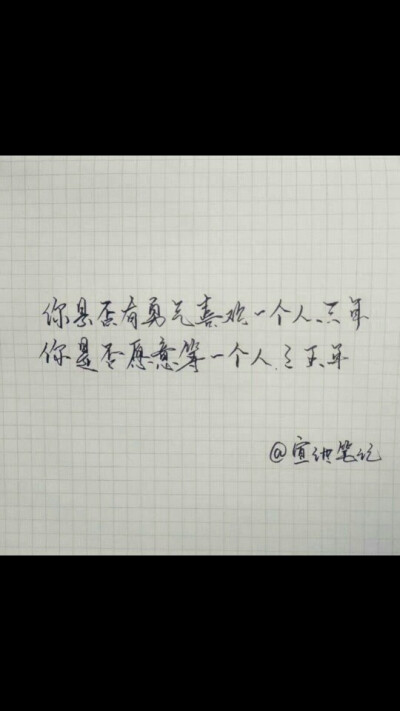 你是否有勇气喜欢一个人三年
你是否愿意等一个人三五年
@宣泄笔记